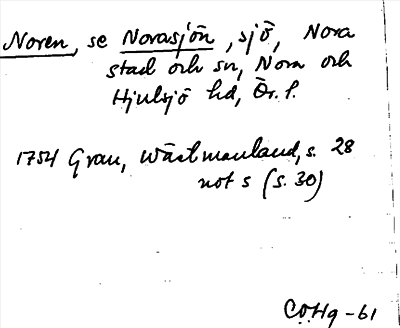 Noren, se Novasjön, sjö, Nora
stad och sn, Nora och
Hjulsjö hd, Ör. l.
1754 Grau, Wästmanland, s. 28
not s (s. 30)
COHg-61